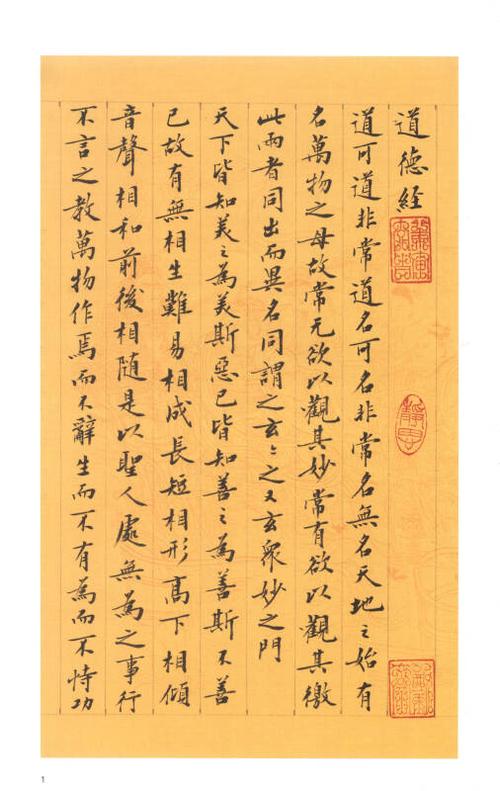 道德經
道可道非常道名可名非常名無名天地之始有
名萬物之母故常无欲以觀其妙常有欲以觀其徼
此兩者同出而異名同謂之玄〻之又玄衆妙之門
天下皆知美之為美斯惡已皆知善之為善斯不善
已故有無相生難易相成長短相形高下相傾
音聲相和前後相隨是以聖人處無為之事行
不言之教萬物作焉而不辭生而不有為而不恃功
1